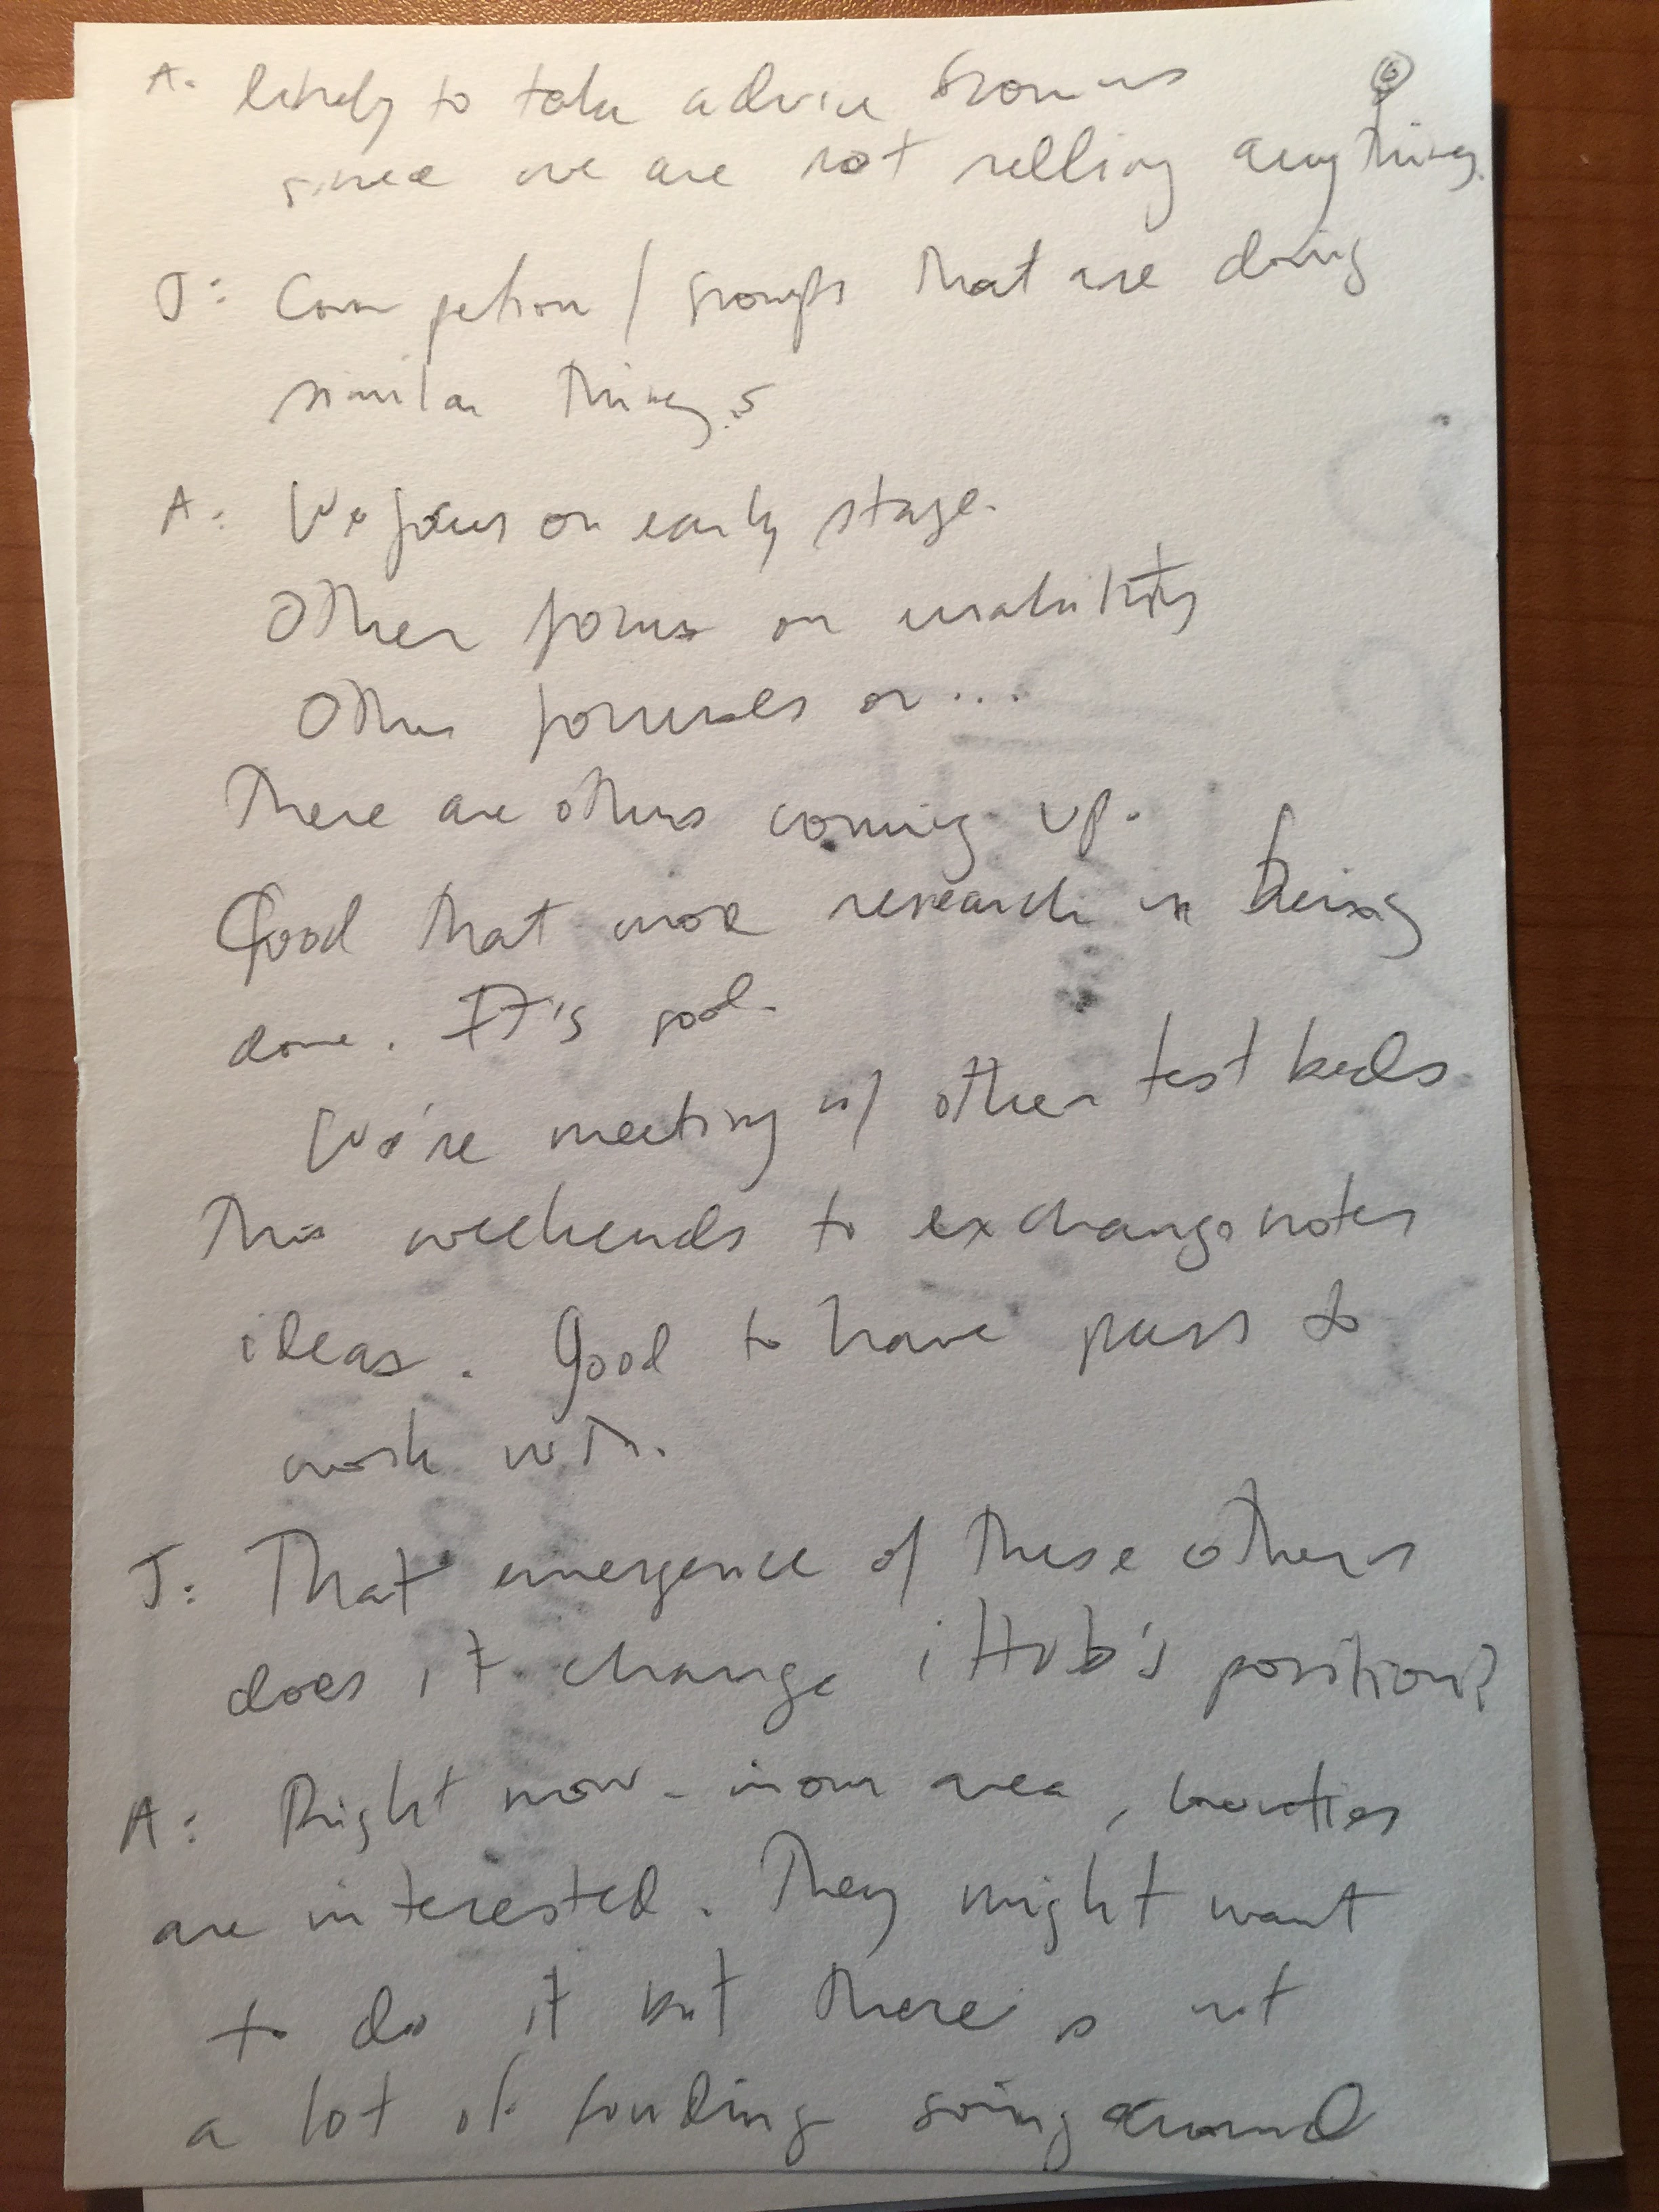 6
A: likely to take advice from us
since we are not selling anything.
J: Competion / groups that are doing
similar things
A: We focus on early stage.
Other focus on usability
Other focuses on ...
There are others coming up.
Good that more research is being
done. It's good.
We're meeting w/ other test beds
this weekends to exchange notes
ideas. Good to have peers to
work with.
J: That emergence of these others
does it change iHub's position?
A: Right now - in our area, counties
are interested. They might want
to do it but there is not
a lot of funding going around